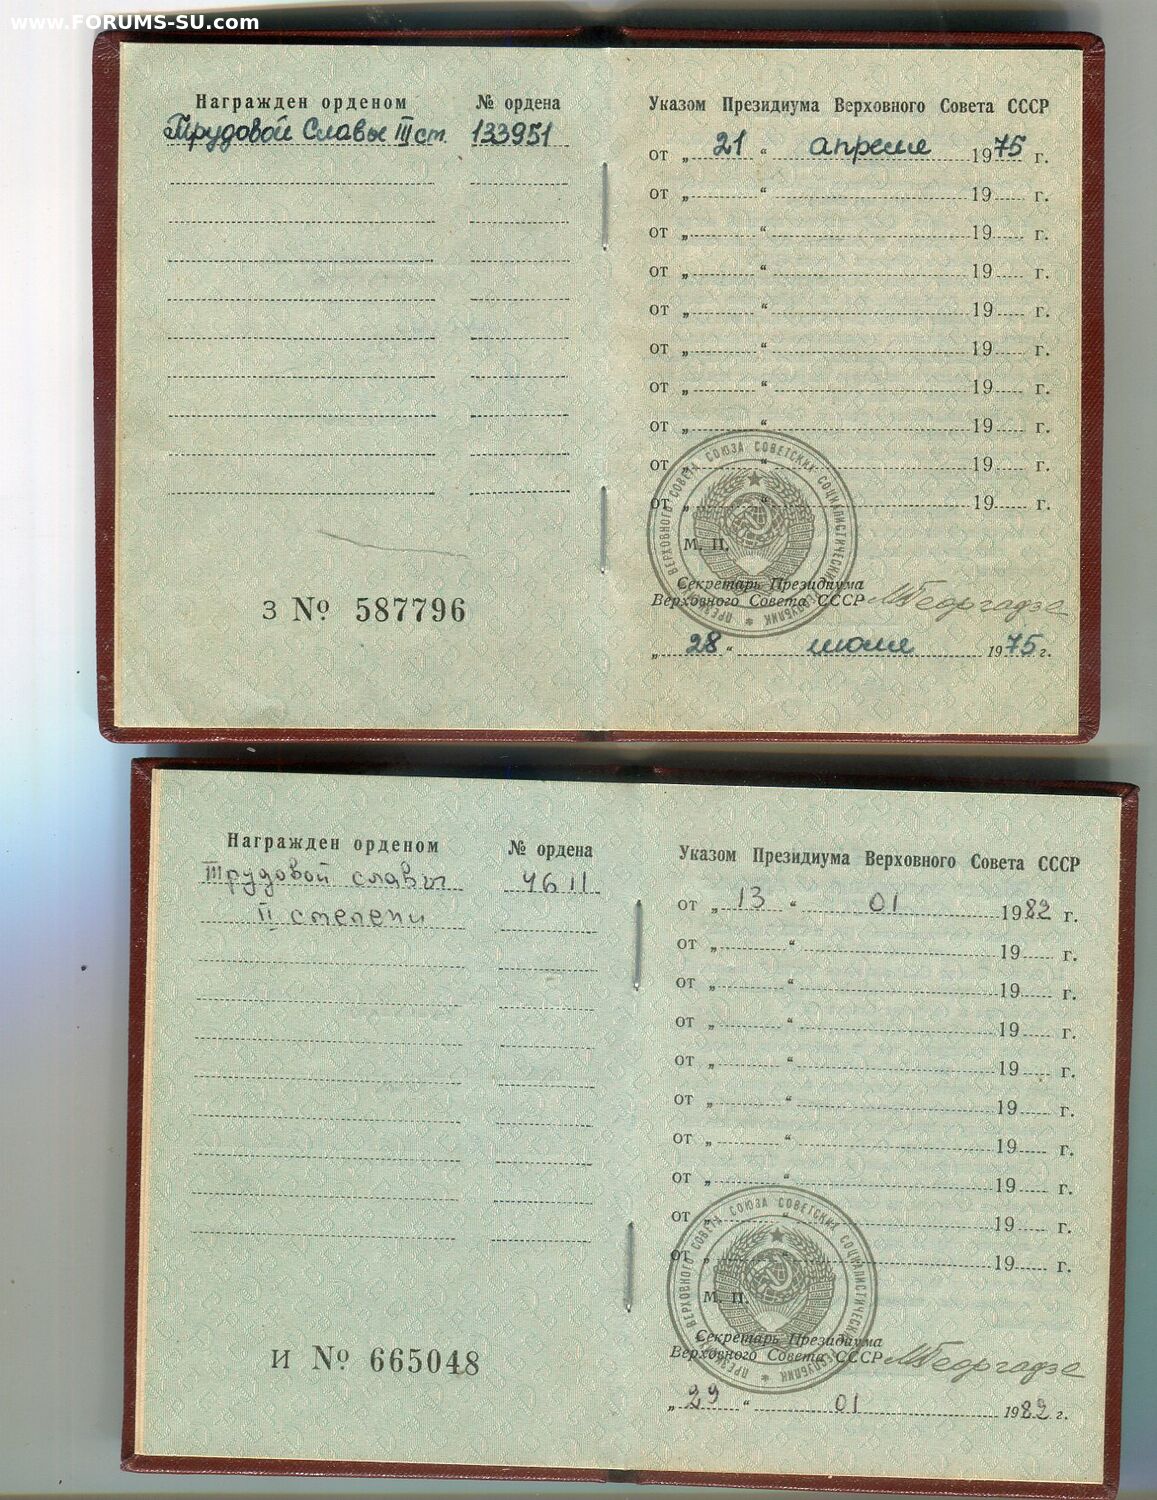 www.FORUMS-SU.com
Награжден орденом № ордена
Трудовой Славы III ст. 133951
Указом Президиума Верховного Совета СССР
от „ 21 “ апреля 1975 г.
от „ “ 19 г.
от „ “ 19 г.
от „ “ 19 г.
от „ “ 19 г.
от „ “ 19 г.
от „ “ 19 г.
от „ “ 19 г.
от „ “ 19 г.
от „ “ 19 г.
ПРЕЗИДИУМ ВЕРХОВНОГО СОВЕТА СОЮЗА СОВЕТСКИХ СОЦИАЛИСТИЧЕСКИХ РЕСПУБЛИК
М. П.
Секретарь Президиума
Верховного Совета СССР МГеоргадзе
„ 28 “ июля 1975 г.
З № 587796
Награжден орденом № ордена
Трудовой славы 4611
II степени
Указом Президиума Верховного Совета СССР
от „ 13 “ 01 1982 г.
от „ “ 19 г.
от „ “ 19 г.
от „ “ 19 г.
от „ “ 19 г.
от „ “ 19 г.
от „ “ 19 г.
от „ “ 19 г.
от „ “ 19 г.
от „ “ 19 г.
ПРЕЗИДИУМ ВЕРХОВНОГО СОВЕТА СОЮЗА СОВЕТСКИХ СОЦИАЛИСТИЧЕСКИХ РЕСПУБЛИК
М. П.
Секретарь Президиума
Верховного Совета СССР МГеоргадзе
„ 29 “ 01 1982 г.
И № 665048